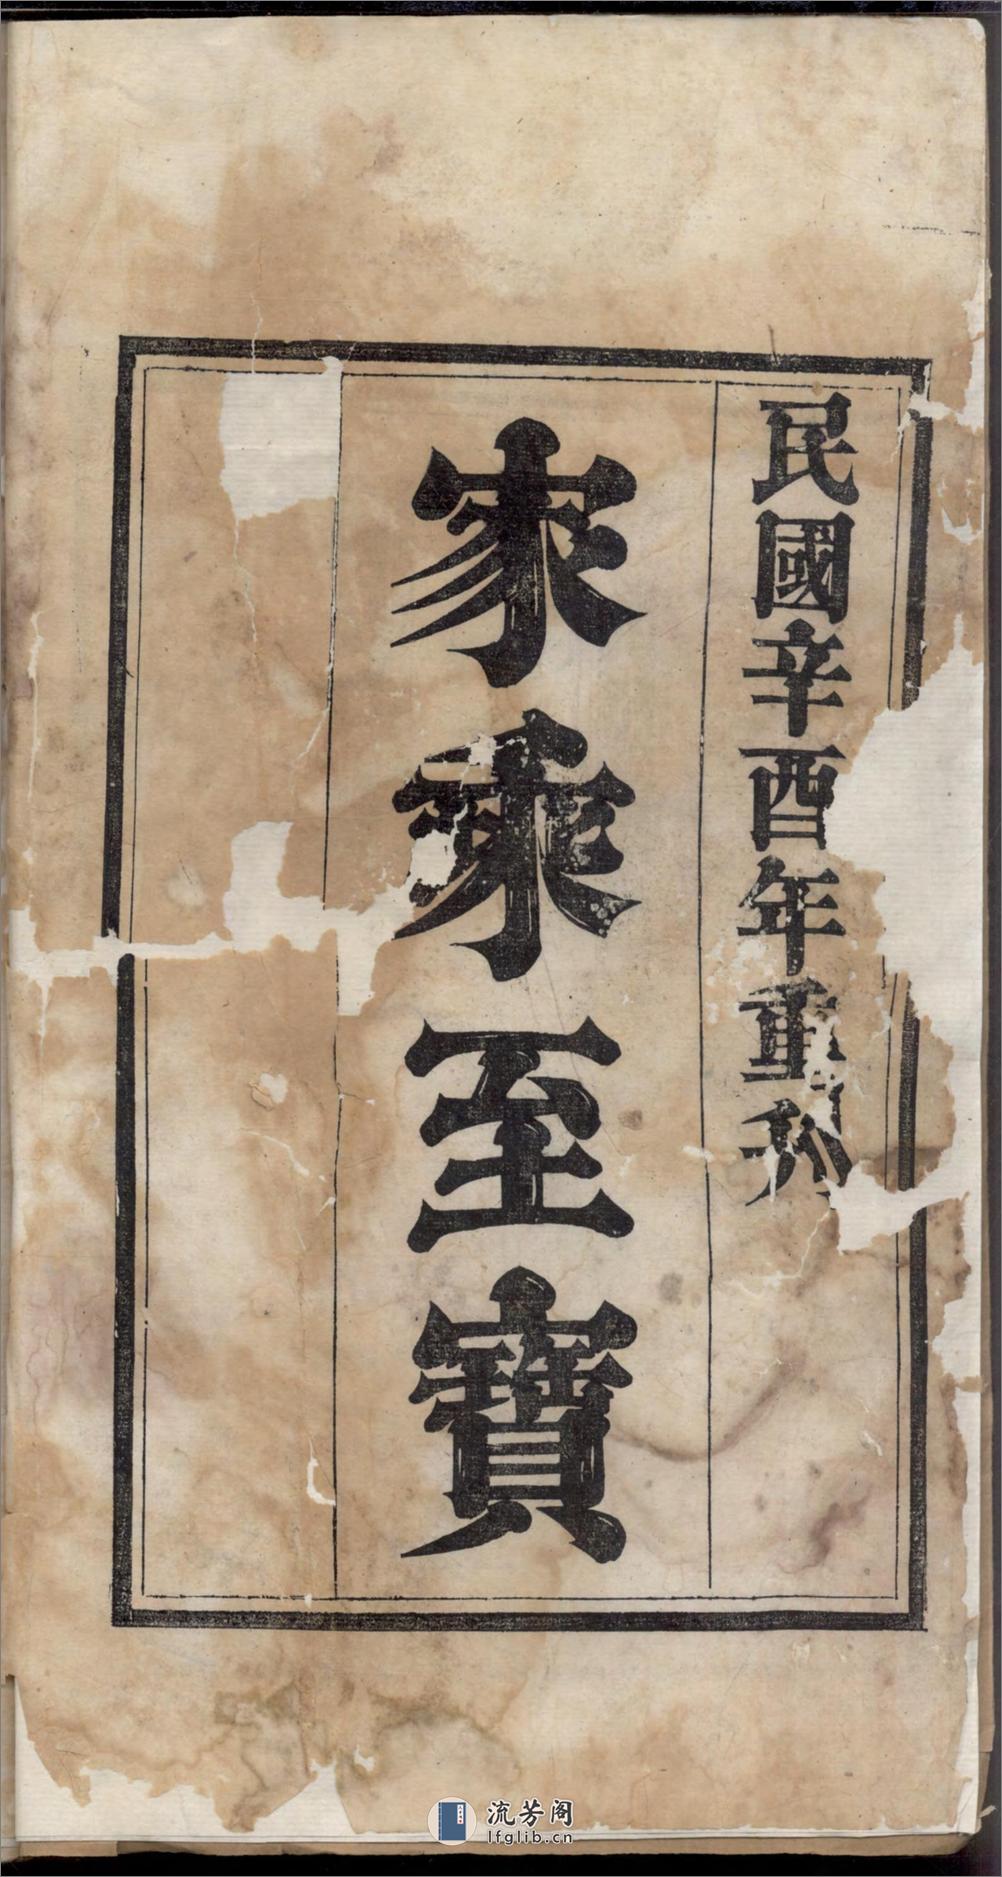 民國辛酉年重刊
家乘至寶
流芳阁
lfglib.cn